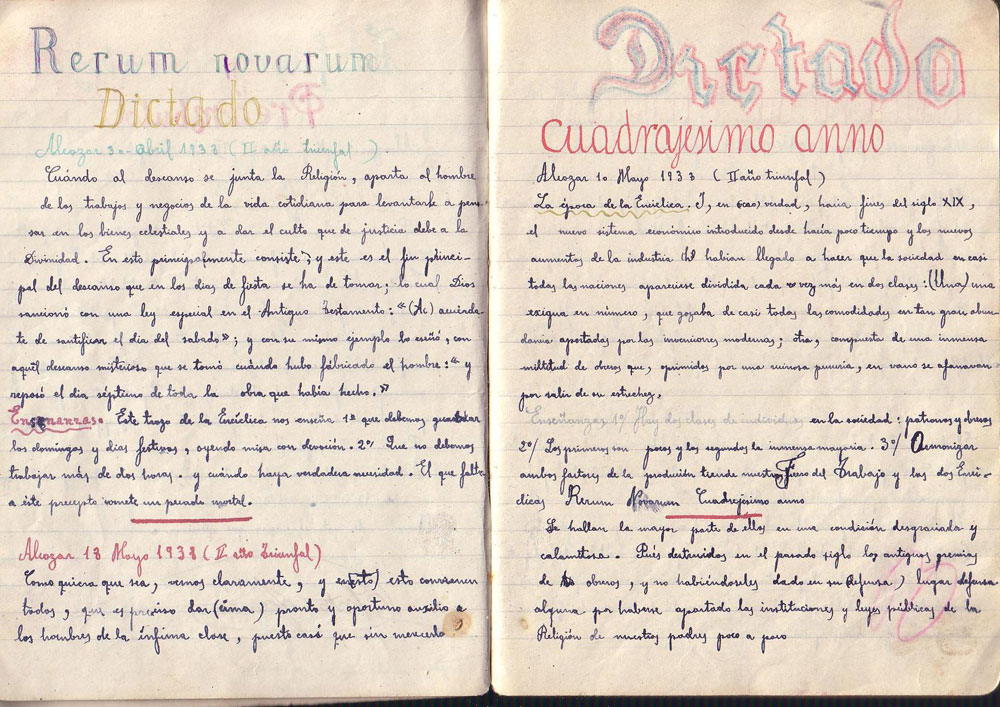 Rerum novarum
Dictado
Alcozar 30-abril 1938 (II año triunfal)
Cuándo al descanso se junta la Religión, aparta al hombre
de los trabajos y negocios de la vida cotidiana para levantarle a pen-
sar en los bienes celestiales y a dar el culto que de justicia debe a la
Divinidad. En esto principalmente consiste; y este es el fin princi-
pal del descanso que en los dias de fiesta se ha de tomar; lo cual Dios
sancionó con una ley especial en el Antiguo Testamento: "(Ac) acuérda
te de santificar el dia del sabado"; y con su mismo ejemplo lo eseñó, con
aquél descanso misterioso que se tomó cuándo hubo fábricado el hombre: "y
reposó el dia séptimo de toda la obra que habia hecho."
Enseñanzas. Este trozo de la Encíclica nos enseña 1º que debemos guardar
los domingos y dias festivos, oyendo misa con devoción. 2º Que no debemos
trabajar más de dos horas. y cuándo haya verdadera necesidad. El que falte
a este precepto comete un pecado mortal.
Alcozar 18 Mayo 1938 (II año Triunfal)
Como quiera que sea, vemos claramente, y en esto convienen
todos, que es preciso dar (cima) pronto y oportuno auxilio a
los hombres de la ínfima clase, puesto casó que sin merecerlo
Dictado
Cuadrajesimo anno
Alcozar 10 Mayo 1933 (II año triunfal)
La época de la Enciclica. I, en (cao) verdad, hacia fines del siglo XIX,
el nuevo sistema económico introducido desde hacía poco tiempo y los nuevos
aumentos de la industria (h) habian llegado a hacer que la sociedad en casi
todas las naciones apareciese dividida cada vez más en dos clases: (Una) una
exigua en número, que gozaba de casi todas las comodidades en tan gran abun
dancia aportadas por las invenciones modernas; otra, compuesta de una inmensa
miltitud de obreros que, oprimidos por una ruinosa penuria, en vano se afanavan
por salir de su estrechez.
Enseñanzas 1º/ Hay dos clases de individuos en la sociedad: patronos y obreros
2º/ Los primeros son pocos y los segundos la inmensa mayoria. 3º/ Armonizar
ambos factores de la produción tiende nuestro Fuero del Trabajo y las dos Encí-
clicas Rerum Novarum Cuadrejesimo anno
Se hallan la mayor parte de ellos en una condición desgraciada y
calamitosa. Pués destruidos en el pasado siglo los antiguos gremios
de obreros, y no habiéndoseles dado en su (defensa) lugar defensa
alguna por haberse apartado las instituciones y leyes públicas de la
Religión de nuestros padres poco a poco